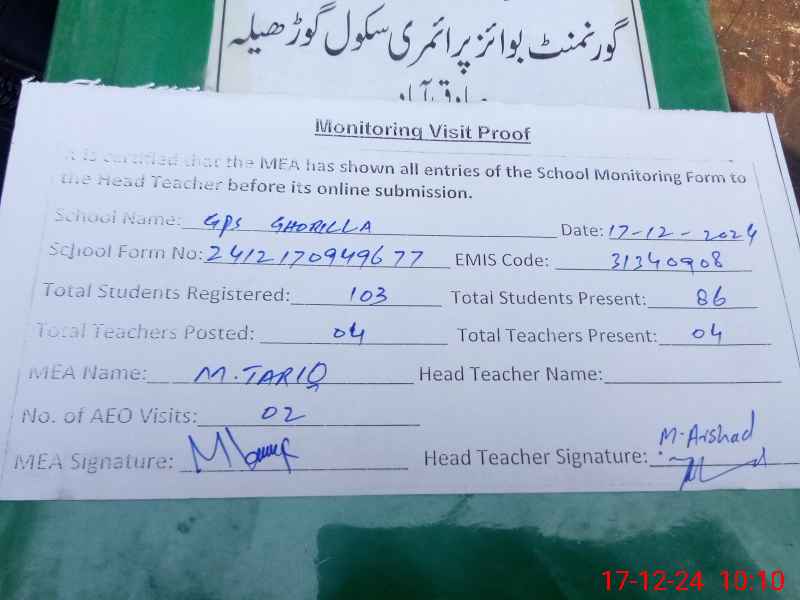 گورنمنٹ بوائز پرائمری سکول گوڑھیلہ
صادق آباد
Monitoring Visit Proof
It is certified that the MEA has shown all entries of the School Monitoring Form to
the Head Teacher before its online submission.
School Name: GPS GHORILLA Date: 17-12-2024
School Form No: 2412170949677 EMIS Code: 31340908
Total Students Registered: 103 Total Students Present: 86
Total Teachers Posted: 04 Total Teachers Present: 04
MEA Name: M.TARIQ Head Teacher Name:
No. of AEO Visits: 02
M-Arshad
MEA Signature: Head Teacher Signature:
17-12-24 10:10